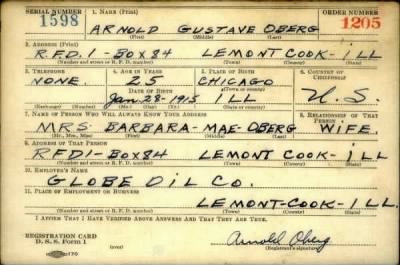 SERIAL NUMBER 1. NAME (Print) ORDER NUMBER
1598 ARNOLD GUSTAVE OBERG 1205
(First) (Middle) (Last)
2. ADDRESS (Print)
R.F.D. 1 - BOX 84 LEMONT COOK - ILL
(Number and street or R. F. D. number) (Town) (County) (State)
3. TELEPHONE 4. AGE IN YEARS 5. PLACE OF BIRTH 6. COUNTRY OF CITIZENSHIP
NONE. 25 CHICAGO
DATE OF BIRTH (Town or county)
Jan. 28 - 1915 ILL U.S
(Exchange) (Number) (Mo.) (Day) (Yr.) (State or country)
7. NAME OF PERSON WHO WILL ALWAYS KNOW YOUR ADDRESS 8. RELATIONSHIP OF THAT PERSON
MRS BARBARA - MAE - OBERG WIFE.
(Mr., Mrs., Miss) (First) (Middle) (Last)
9. ADDRESS OF THAT PERSON
RFD1 - BOX 84 LEMONT COOK - ILL
(Number and street or R. F. D. number) (Town) (County) (State)
10. EMPLOYER'S NAME
GLOBE OIL CO.
11. PLACE OF EMPLOYMENT OR BUSINESS
LEMONT - COOK - ILL.
(Number and street or R. F. D. number) (Town) (County) (State)
I AFFIRM THAT I HAVE VERIFIED ABOVE ANSWERS AND THAT THEY ARE TRUE.
REGISTRATION CARD
D. S. S. Form 1 Arnold Oberg
(Registrant's signature)